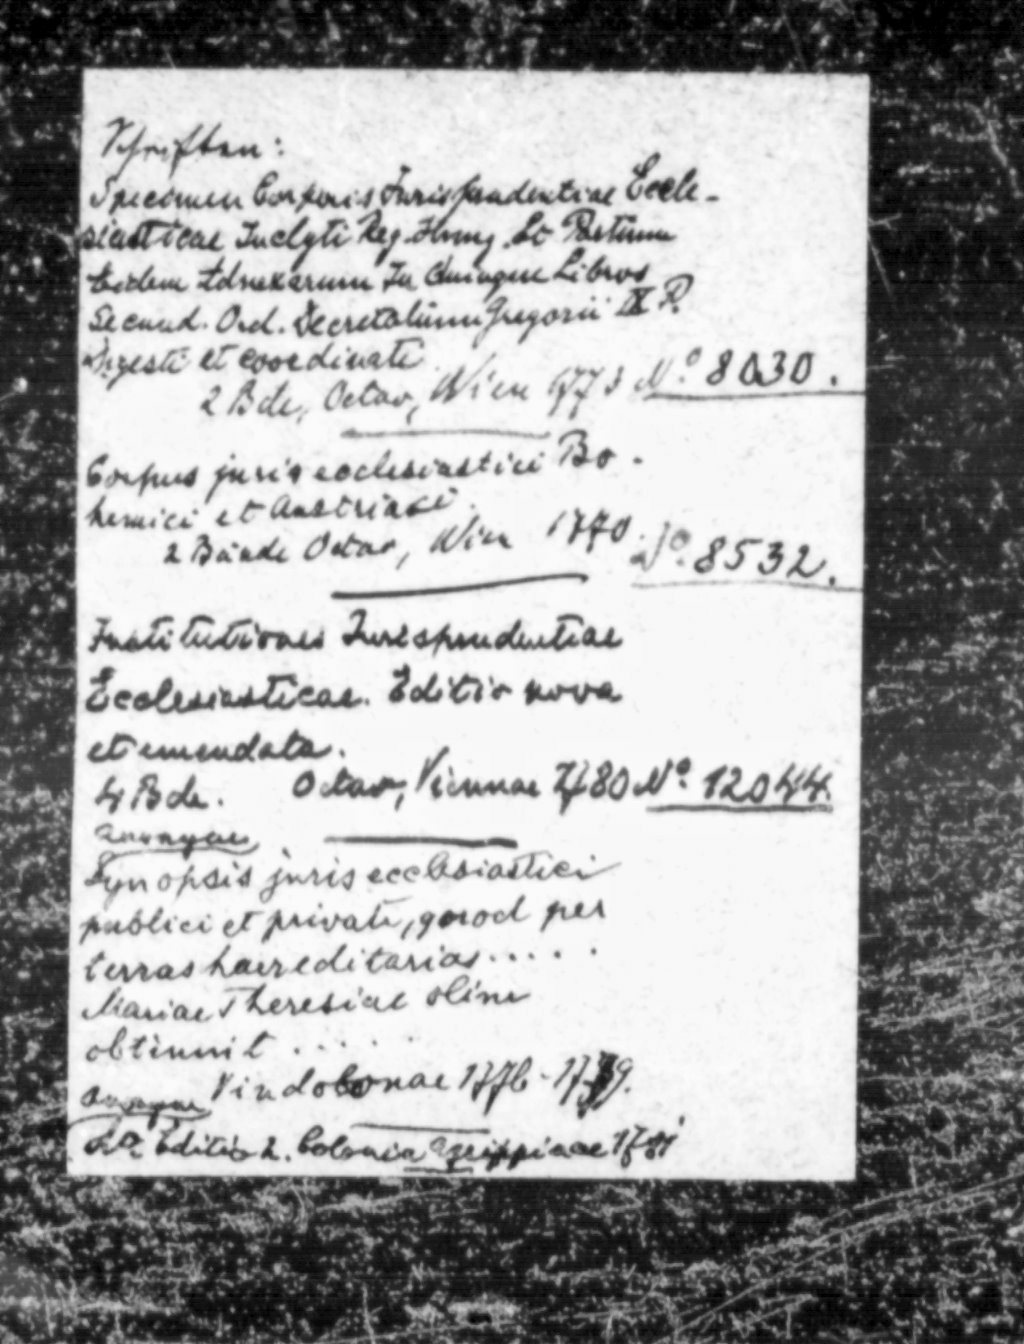 Schriften:
Specimen Corporis Jurisprudentiae Eccle-
siasticae Inclyti Reg. Hung. Et Partium
Eidem Adnexarum In Quinque Libros
Secund. Ord. Decretalium Gregorii IX P.
Digesti et coordinati.
2 Bde, Octav, Wien 1773 No. 8030.
Corpus juris ecclesiastici Bo-
hemici et Austriaci.
2 Bände Octav, Wien 1770. No. 8532.
Institutiones Jurisprudentiae
Ecclesiasticae. Editio nova
et emendata.
4 Bde. Octav, Viennae 1780 No. 12044.
Synopsis juris ecclesiastici
publici et privati, quod per
terras haereditarias.....
Mariae Theresiae olim
obtinuit.....
Vindobonae 1776-1779.
Editio 2. Colonia Agrippinae 1781